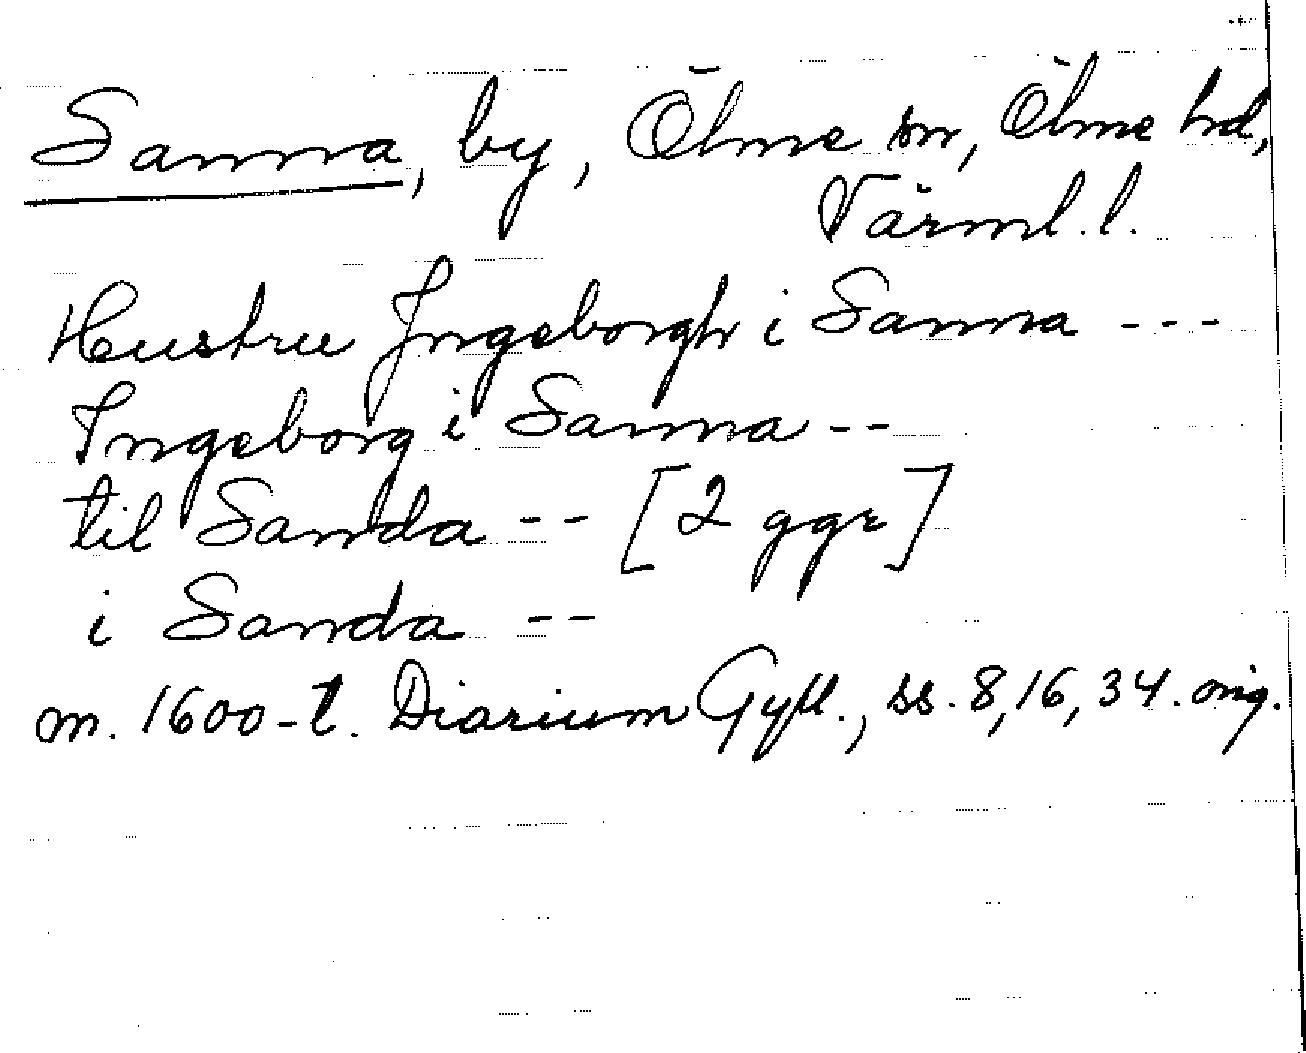 Sanna, by, Ölme sn, Ölme hd,
Värml. l.
Hustru Jngeborgh i Sanna ---
Ingeborg i Sanna --
til Sanda -- [2 ggr]
i Sanda --
m. 1600-t. Diarium Gyll., ss. 8, 16, 34. orig.